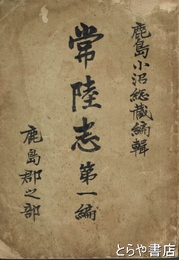 鹿島小沼総蔵編輯
常陸志 第一編
鹿島郡之部
とらや書店